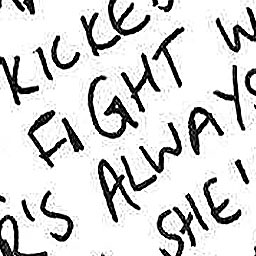 KICKED
FIGHT W
R'S ALWAYS
SHE'